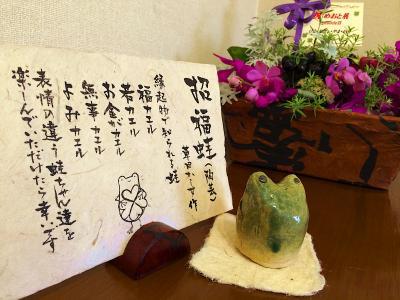 招福蛙
縁起物で知られる蛙
福カエル
若カエル
お金がカエル
無事カエル
よみカエル
表情の違う蛙ちゃん達を
楽しんでいただけたら幸いです